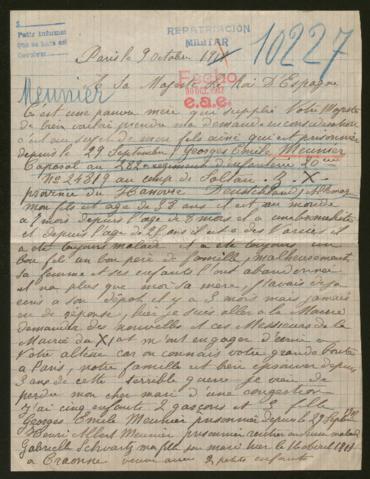 REPATRIACIÓN
MILITAR
10227
Paris le 9 octobre
Fecho
e.a.e.
Meunier
A Sa Majesté le Roi D'Espagne
C'est une pauvre mère qui supplie Votre Majesté
de bien vouloir prendre ma demande en considération
c'est au sujet de mon fils ainé qui est prisonnier
depuis le 29 Septembre Georges Emile Meunier
Caporal au 282e regiment d'infanterie 20eme
No 24319 au camp de Soltau. 3. X.
province du Hanovre Deutschland Allemag
mon fils est agé de 33 ans il est au monde
a 7 mois depuis l'age de 8 mois il a une
et depuis l'age de 20 ans il a des Varices il
a été toujours malade il a été toujours un
bon fils un bon père de famille, malheureusement
sa femme et ses enfants l'ont abandonner
et n'a plus que moi sa mère, j'avais déja
ecris a son Dépôt il y a 3 mois mais jamais
eu de réponse, hier je suis aller a la Mairie
demander des nouvelles et ces Messieurs de la
Mairie du XI et m'ont engager d'écrire a
Votre altesse car on connais votre grande bonté
a Paris, notre famille est bien eprouver depuis
3 ans de cette terrible guerre je viens de
perdre mon cher mari d'une congestion
j'ai cinq enfants 2 garçons et 3 filles
Georges Emile Meunier prisonnier depuis le 29 Septembre
Henri Albert Meunier prisonnier rentrer
Gabrielle Schwartz ma fille son mari tuer le 16 avril 1917
a Craonne veuve avec 2 petits enfants